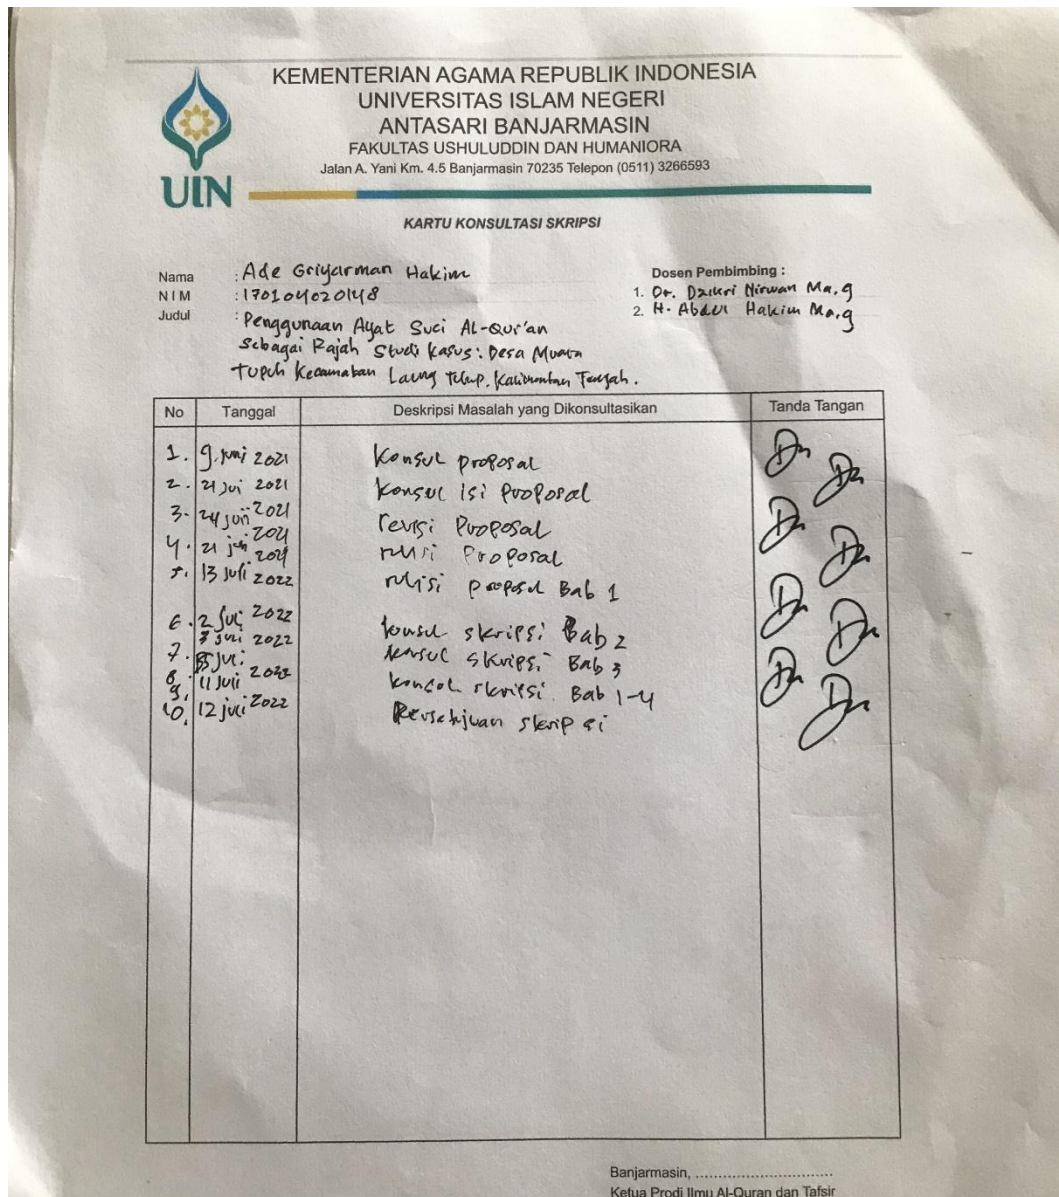 KEMENTERIAN AGAMA REPUBLIK INDONESIA
UNIVERSITAS ISLAM NEGERI
ANTASARI BANJARMASIN
FAKULTAS USHULUDDIN DAN HUMANIORA
Jalan A. Yani Km. 4.5 Banjarmasin 70235 Telepon (0511) 3266593
UIN
KARTU KONSULTASI SKRIPSI
Nama : Ade Griyarman Hakim
NIM : 170104020148
Judul : Penggunaan Ayat Suci Al-Qur'an
Sebagai Rajah Studi Kasus: Desa Muara
Tupuh Kecamatan Laung Tuhup. Kalimantan Tengah.
Dosen Pembimbing :
1. Dr. Dzikri Nirwan Ma.g
2. H. Abdul Hakim Ma.g
No Tanggal Deskripsi Masalah yang Dikonsultasikan Tanda Tangan
1. 9. Juni 2021 Konsul proposal
2. 21 2021 Konsul isi proposal
3. 24 2021 revisi Proposal
4. 21 2021 revisi Proposal
5. 13 Juli 2022 revisi proposal Bab 1
6. 2 Juli 2022 konsul skripsi Bab 2
7. 3 Juli 2022 konsul skripsi Bab 3
8. Juli
9. 11 Juli konsul skripsi Bab 1-4
10. 12 Juli 2022 Persetujuan skripsi
Banjarmasin, ..............................
Ketua Prodi Ilmu Al-Quran dan Tafsir